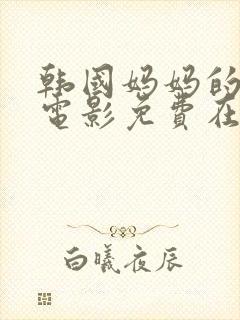 韩國妈妈的
電影免費在
白曦夜辰